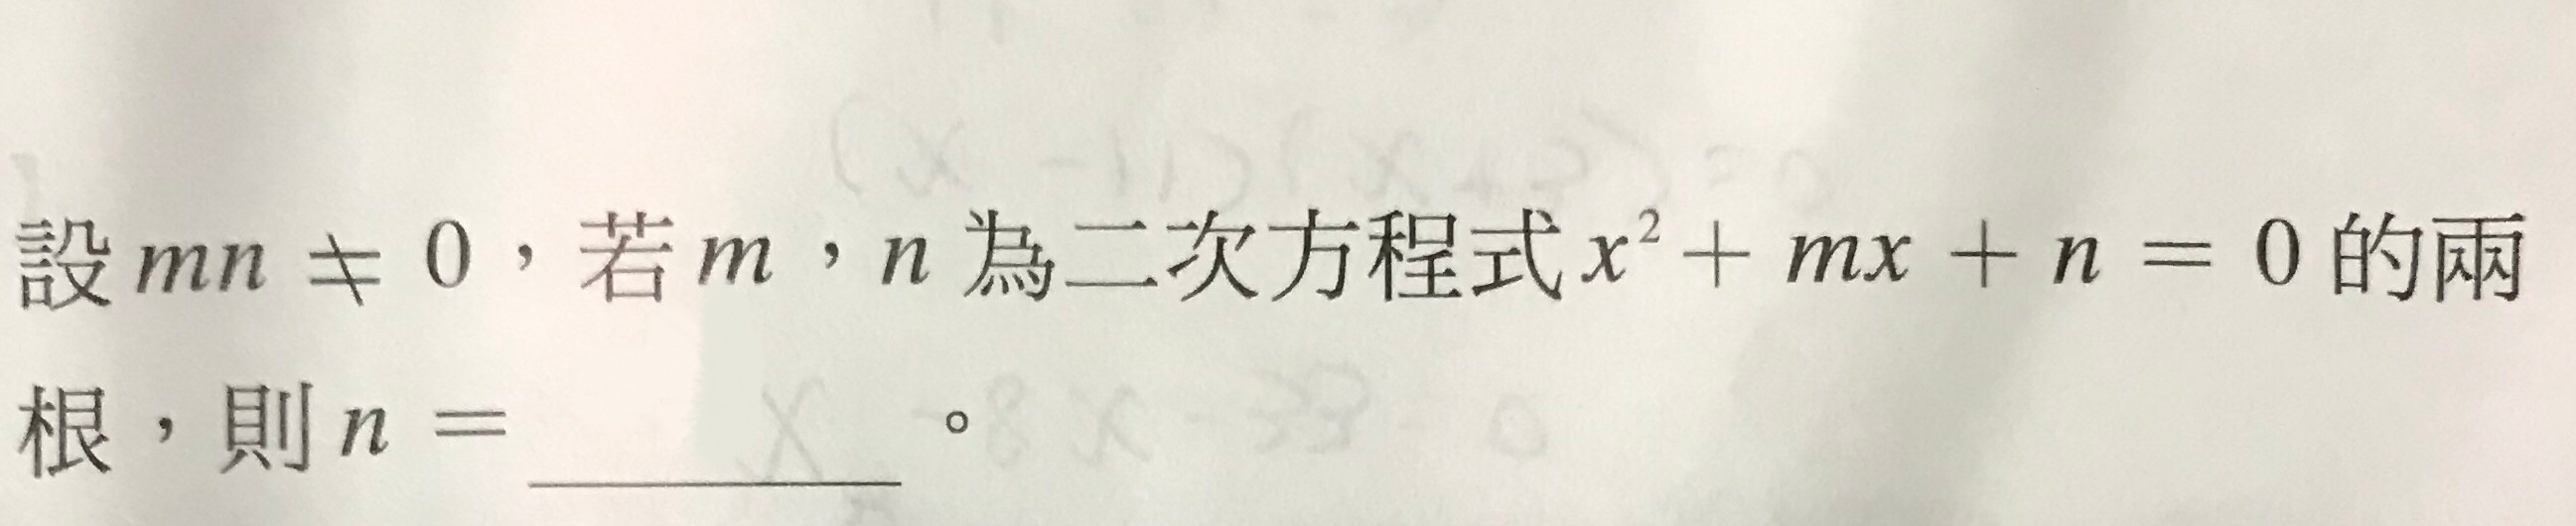 設 mn ≠ 0，若 m，n 為二次方程式 x² + mx + n = 0 的兩
根，則 n = ______。